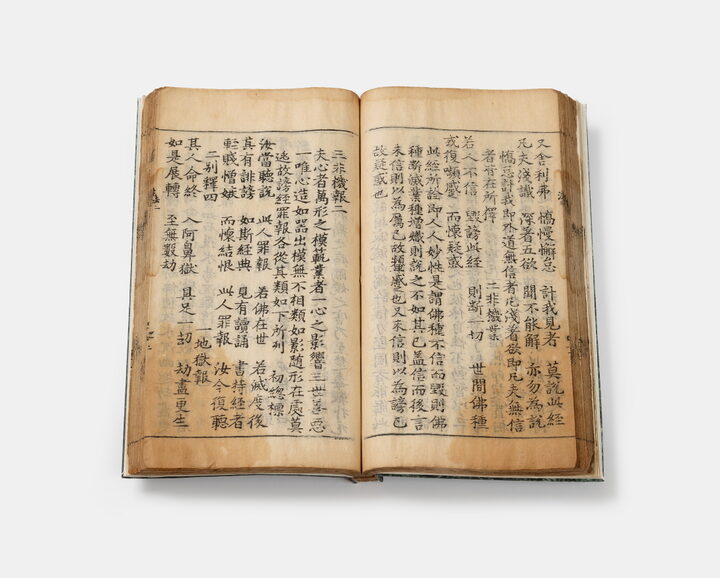 又舍利弗 憍慢懈怠 計我見者 莫說此經
凡夫淺識 深著五欲 聞不能解 亦勿為說
憍怠計我即外道無信者凡淺着欲即凡夫無信
者皆在所擇 二非機業
若人不信 毀謗此經 則斷一切 世間佛種
或復嚬蹙 而懷疑惑
此經所詮即人人妙性是謂佛種不信而毀則佛
種斯滅業種增熾則說之不如其已盖信而後言
未信則以為厲已故顰蹙也又未信則以為謗已
故疑惑也
三非機報二
夫心者萬形之模範業者一心之影響三世善惡
一唯心造如器出模無不相類如影隨形在處莫
逃故謗經罪報各從其類如下所列 初總標
汝當聽說 此人罪報 若佛在世 若滅度後
其有誹謗 如斯經典 見有讀誦 書持經者
輕賤憎嫉 而懷結恨 此人罪報 汝今復聽
二別釋四 一地獄報
其人命終 入阿鼻獄 具足一劫 劫盡更生
如是展轉 至無數劫